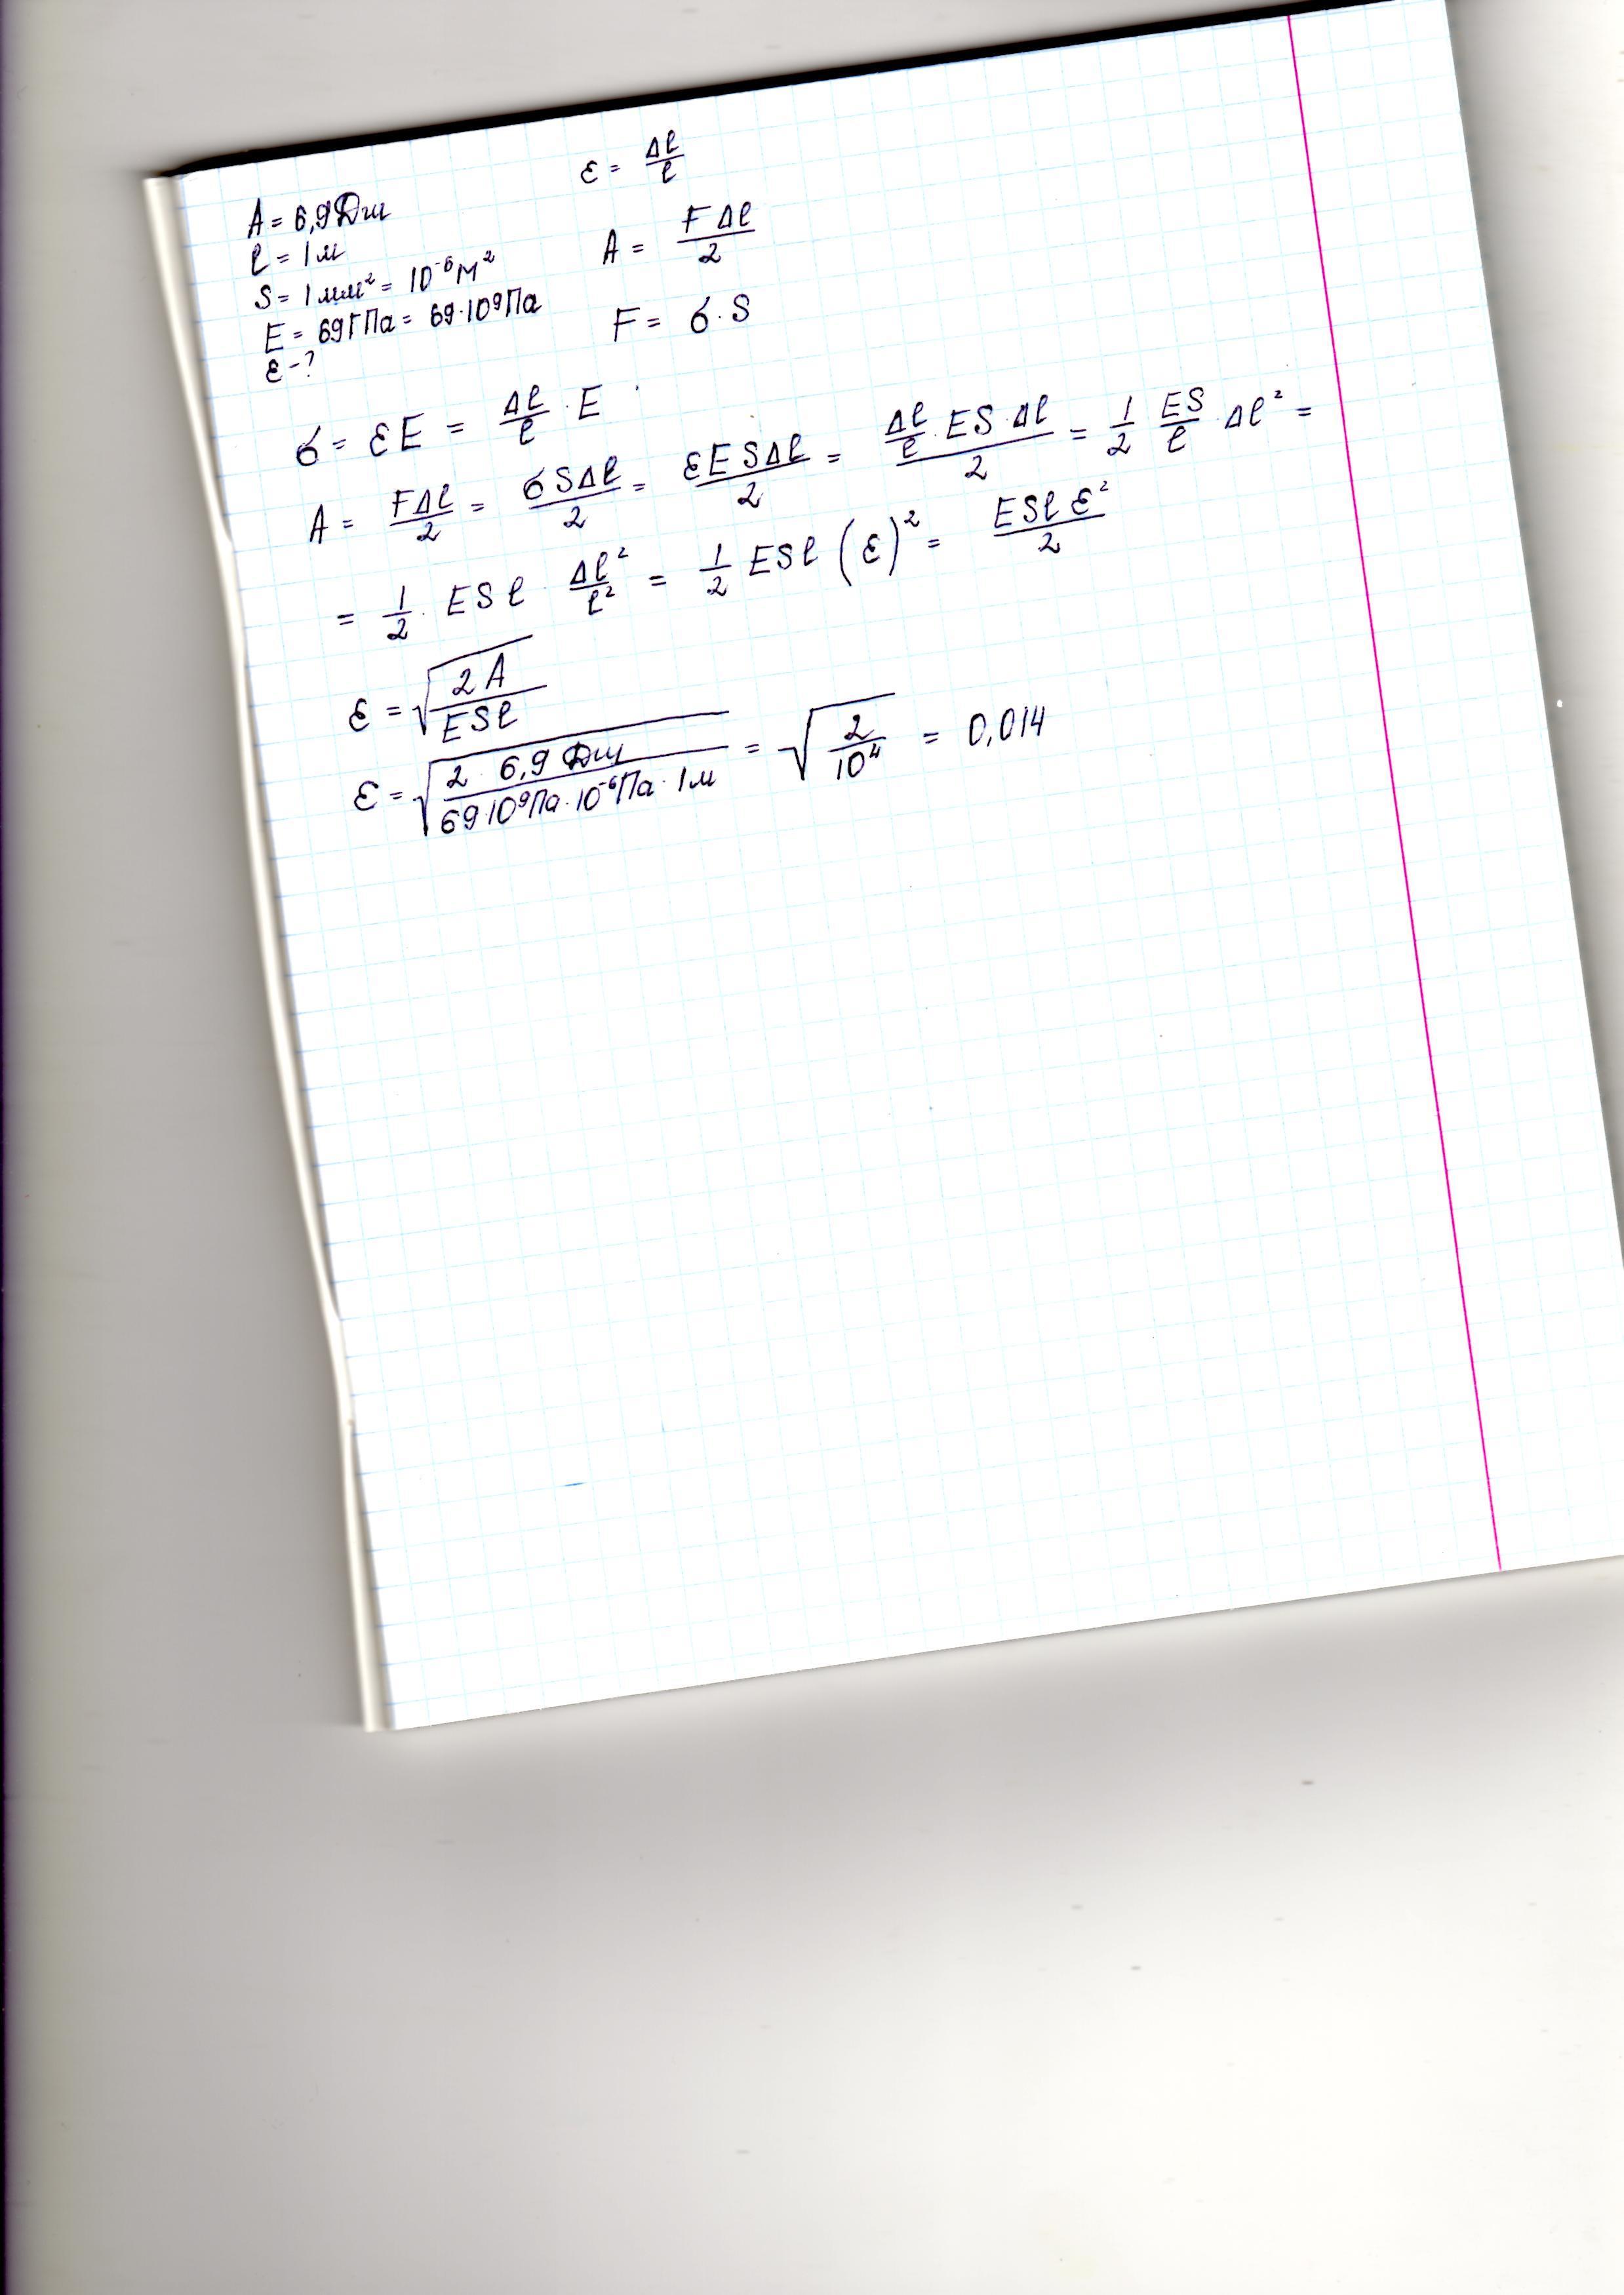 A = 6,9 Дж
l = 1 м
S = 1 мм² = 10⁻⁶ м²
E = 69 ГПа = 69·10⁹ Па
ε - ?
ε = Δl/l
A = FΔl/2
F = σ·S
σ = εE = Δl/l · E
A = FΔl/2 = σSΔl/2 = εESΔl/2 = (Δl/l · ES · Δl)/2 = 1/2 ES/l · Δl² =
= 1/2 · ESl · Δl²/l² = 1/2 ESl (ε)² = ESlε²/2
ε = √(2A/ESl)
ε = √(2 · 6,9 Дж/69·10⁹ Па · 10⁻⁶ Па · 1 м) = √(2/10⁴) = 0,014